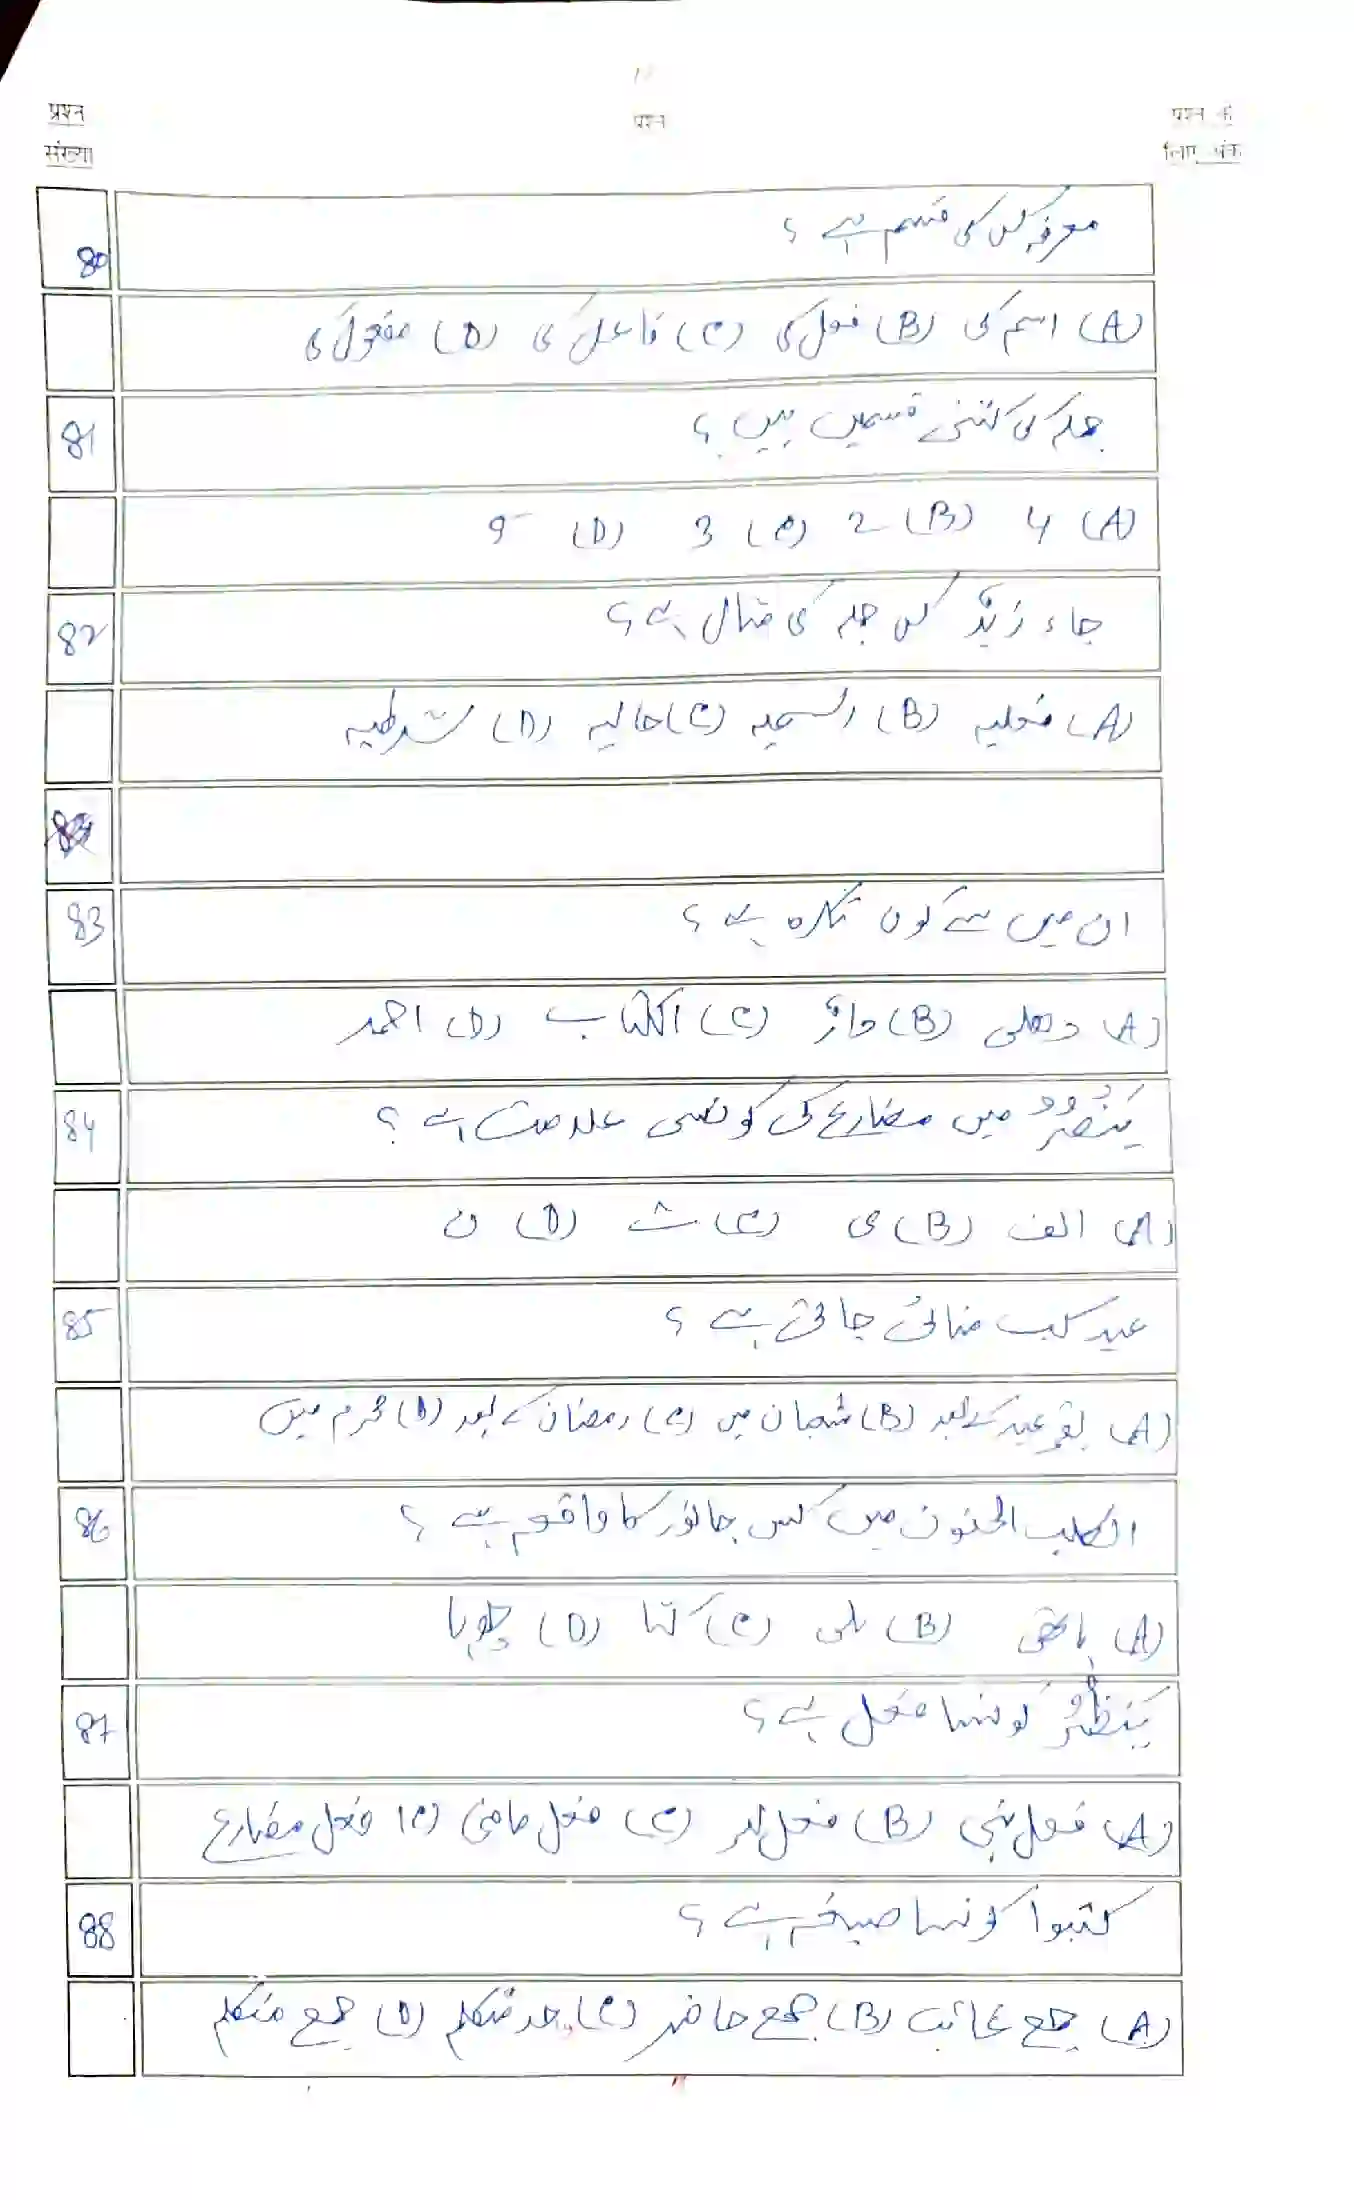 12
प्रश्न संख्या
प्रश्न
प्रश्न के लिए अंक
80 معرفہ کس کی قسم ہے ؟
(A) اسم کی (B) فعل کی (C) فاعل کی (D) مفعول کی
81 جملہ کی کتنی قسمیں ہیں ؟
(A) 4 (B) 2 (C) 3 (D) 5
82 جاء زیدٌ کس جملہ کی مثال ہے ؟
(A) فعلیہ (B) اسمیہ (C) حالیہ (D) شرطیہ
83 ان میں سے کون نکرہ ہے ؟
(A) دھلی (B) دارٌ (C) الکتاب (D) احمد
84 یَنْصُرُ میں مضارع کی کونسی علامت ہے ؟
(A) الف (B) ی (C) ت (D) ن
85 عید کب منائی جاتی ہے ؟
(A) بقرعید کے بعد (B) شعبان میں (C) رمضان کے بعد (D) محرم میں
86 الکلب الجنون میں کس جانور کا واقعہ ہے ؟
(A) ہاتھی (B) بلی (C) کتا (D) چوہا
87 یَنْظُرُ کونسا فعل ہے ؟
(A) فعل نہی (B) فعل امر (C) فعل ماضی (C) فعل مضارع
88 کتبوا کونسا صیغہ ہے ؟
(A) جمع غائب (B) جمع حاضر (C) واحد متکلم (D) جمع متکلم